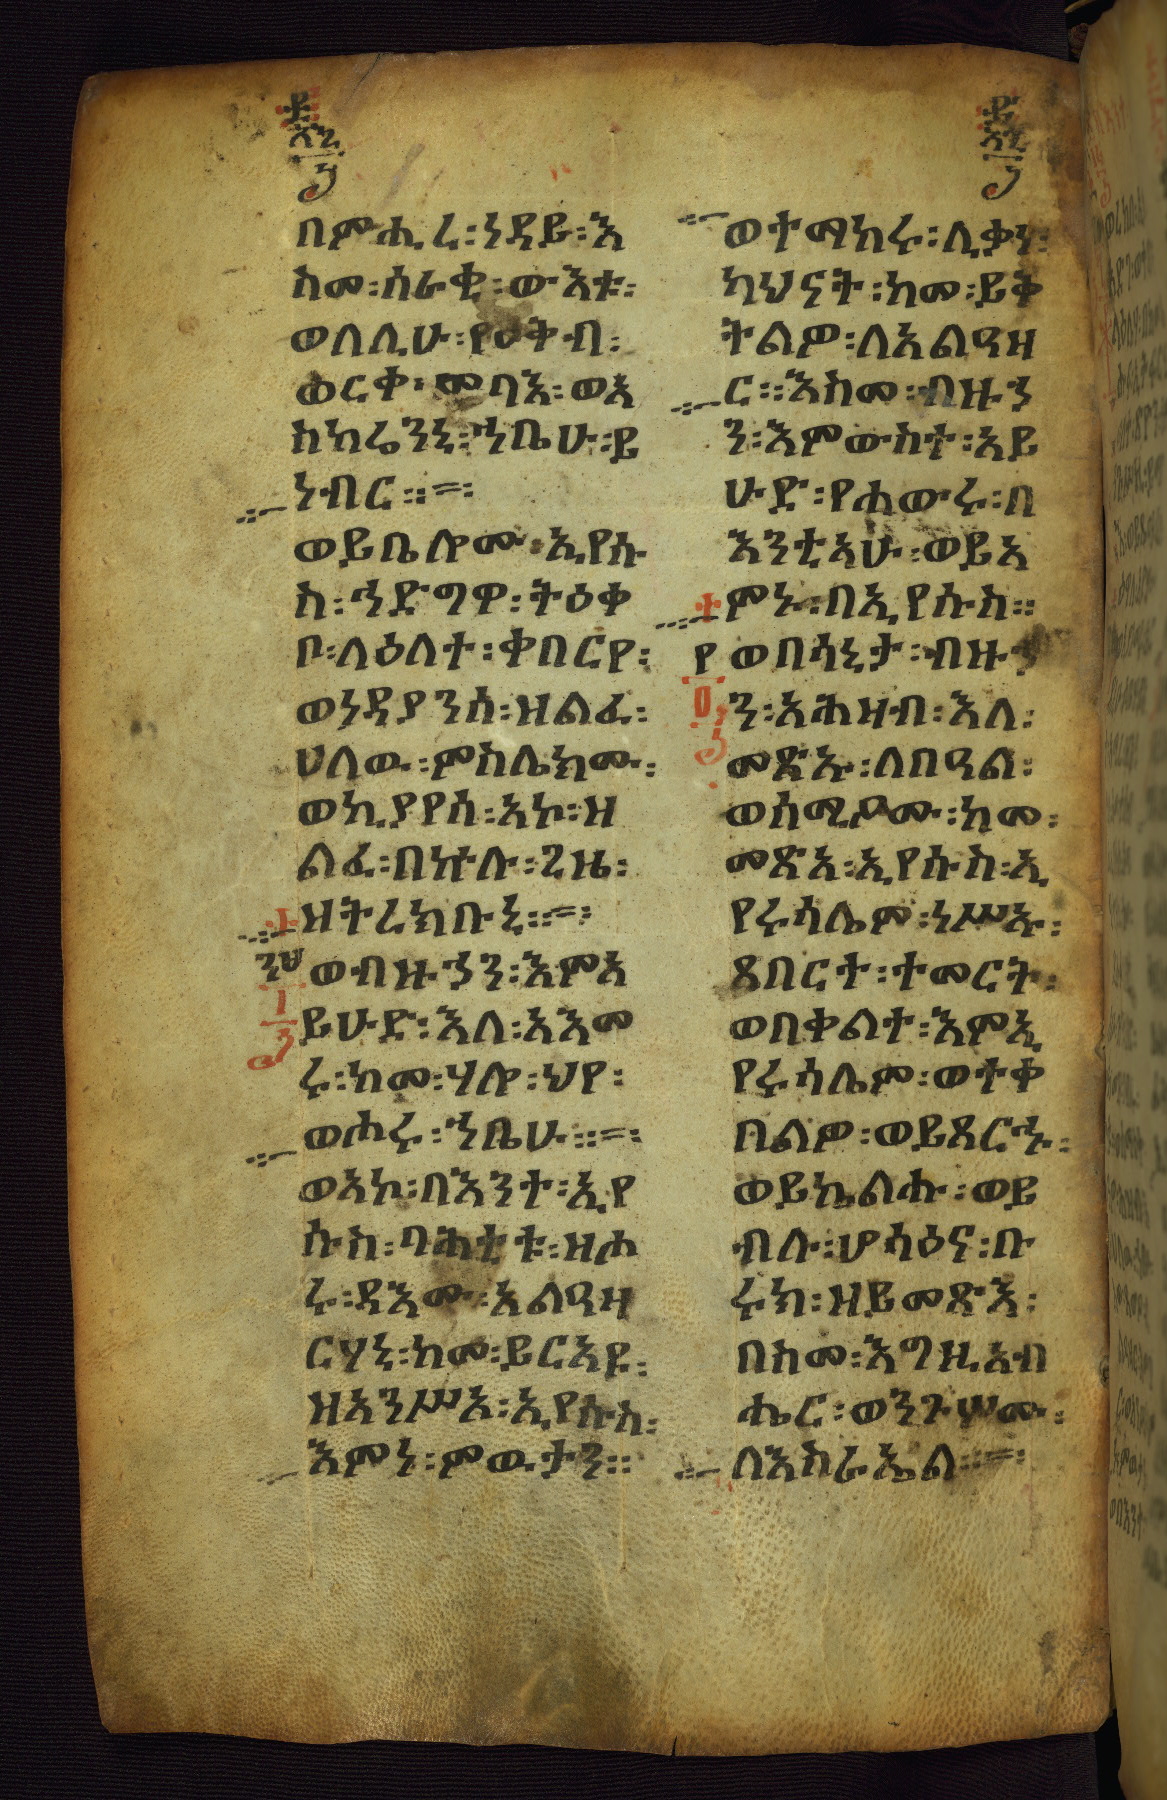 በምሒረ፡ነዳይ፡እ
ስመ፡ሰራቂ፡ውእቱ፡
ወለሊሁ፡የዐቅብ፡
ወርቀ፡መባእ፡ወአ
ስከሬንኒ፡ኀቤሁ፡ይ
ነብር።
ወይቤሎሙ፡ኢየሱ
ስ፡ኀድግዋ፡ትዕቀ
ቦ፡ለዕለተ፡ቀበርየ፡
ወነዳያንሰ፡ዘልፈ፡
ሀለዉ፡ምስሌክሙ፡
ወኪያየሰ፡አኮ፡ዘ
ልፈ፡በኵሉ፡ጊዜ፡
ዘትረክቡኒ።
ወብዙኃን፡እምአ
ይሁድ፡እለ፡አእመ
ሩ፡ከመ፡ሃሎ፡ህየ፡
ወሖሩ፡ኀቤሁ።
ወአኮ፡በእንተ፡ኢየ
ሱስ፡ባሕቲቱ፡ዘሖ
ሩ፡ዳእሙ፡አልዓዛ
ርሃኒ፡ከመ፡ይርአዩ፡
ዘአንሥአ፡ኢየሱስ፡
እምነ፡ምዉታን።
ወተማከሩ፡ሊቃነ፡
ካህናት፡ከመ፡ይቅ
ትልዎ፡ለአልዓዛ
ር።እስመ፡ብዙኃ
ን፡እምውስተ፡አይ
ሁድ፡የሐውሩ፡በ
እንቲአሁ፡ወይአ
ምኑ፡በኢየሱስ።
ወበሳኒታ፡ብዙኃ
ን፡አሕዛብ፡እለ፡
መጽኡ፡ለበዓል፡
ወሰሚዖሙ፡ከመ፡
መጽአ፡ኢየሱስ፡ኢ
የሩሳሌም፡ነሥኡ፡
ጸበርተ፡ተመርት፡
ወበቀልተ፡እምኢ
የሩሳሌም፡ወተቀ
በልዎ፡ወይጸርኁ፡
ወይኬልሑ፡ወይ
ብሉ፡ሆሳዕና፡ቡ
ሩክ፡ዘይመጽእ፡
በስመ፡እግዚአብ
ሔር፡ወንጉሦሙ፡
ለእስራኤል።